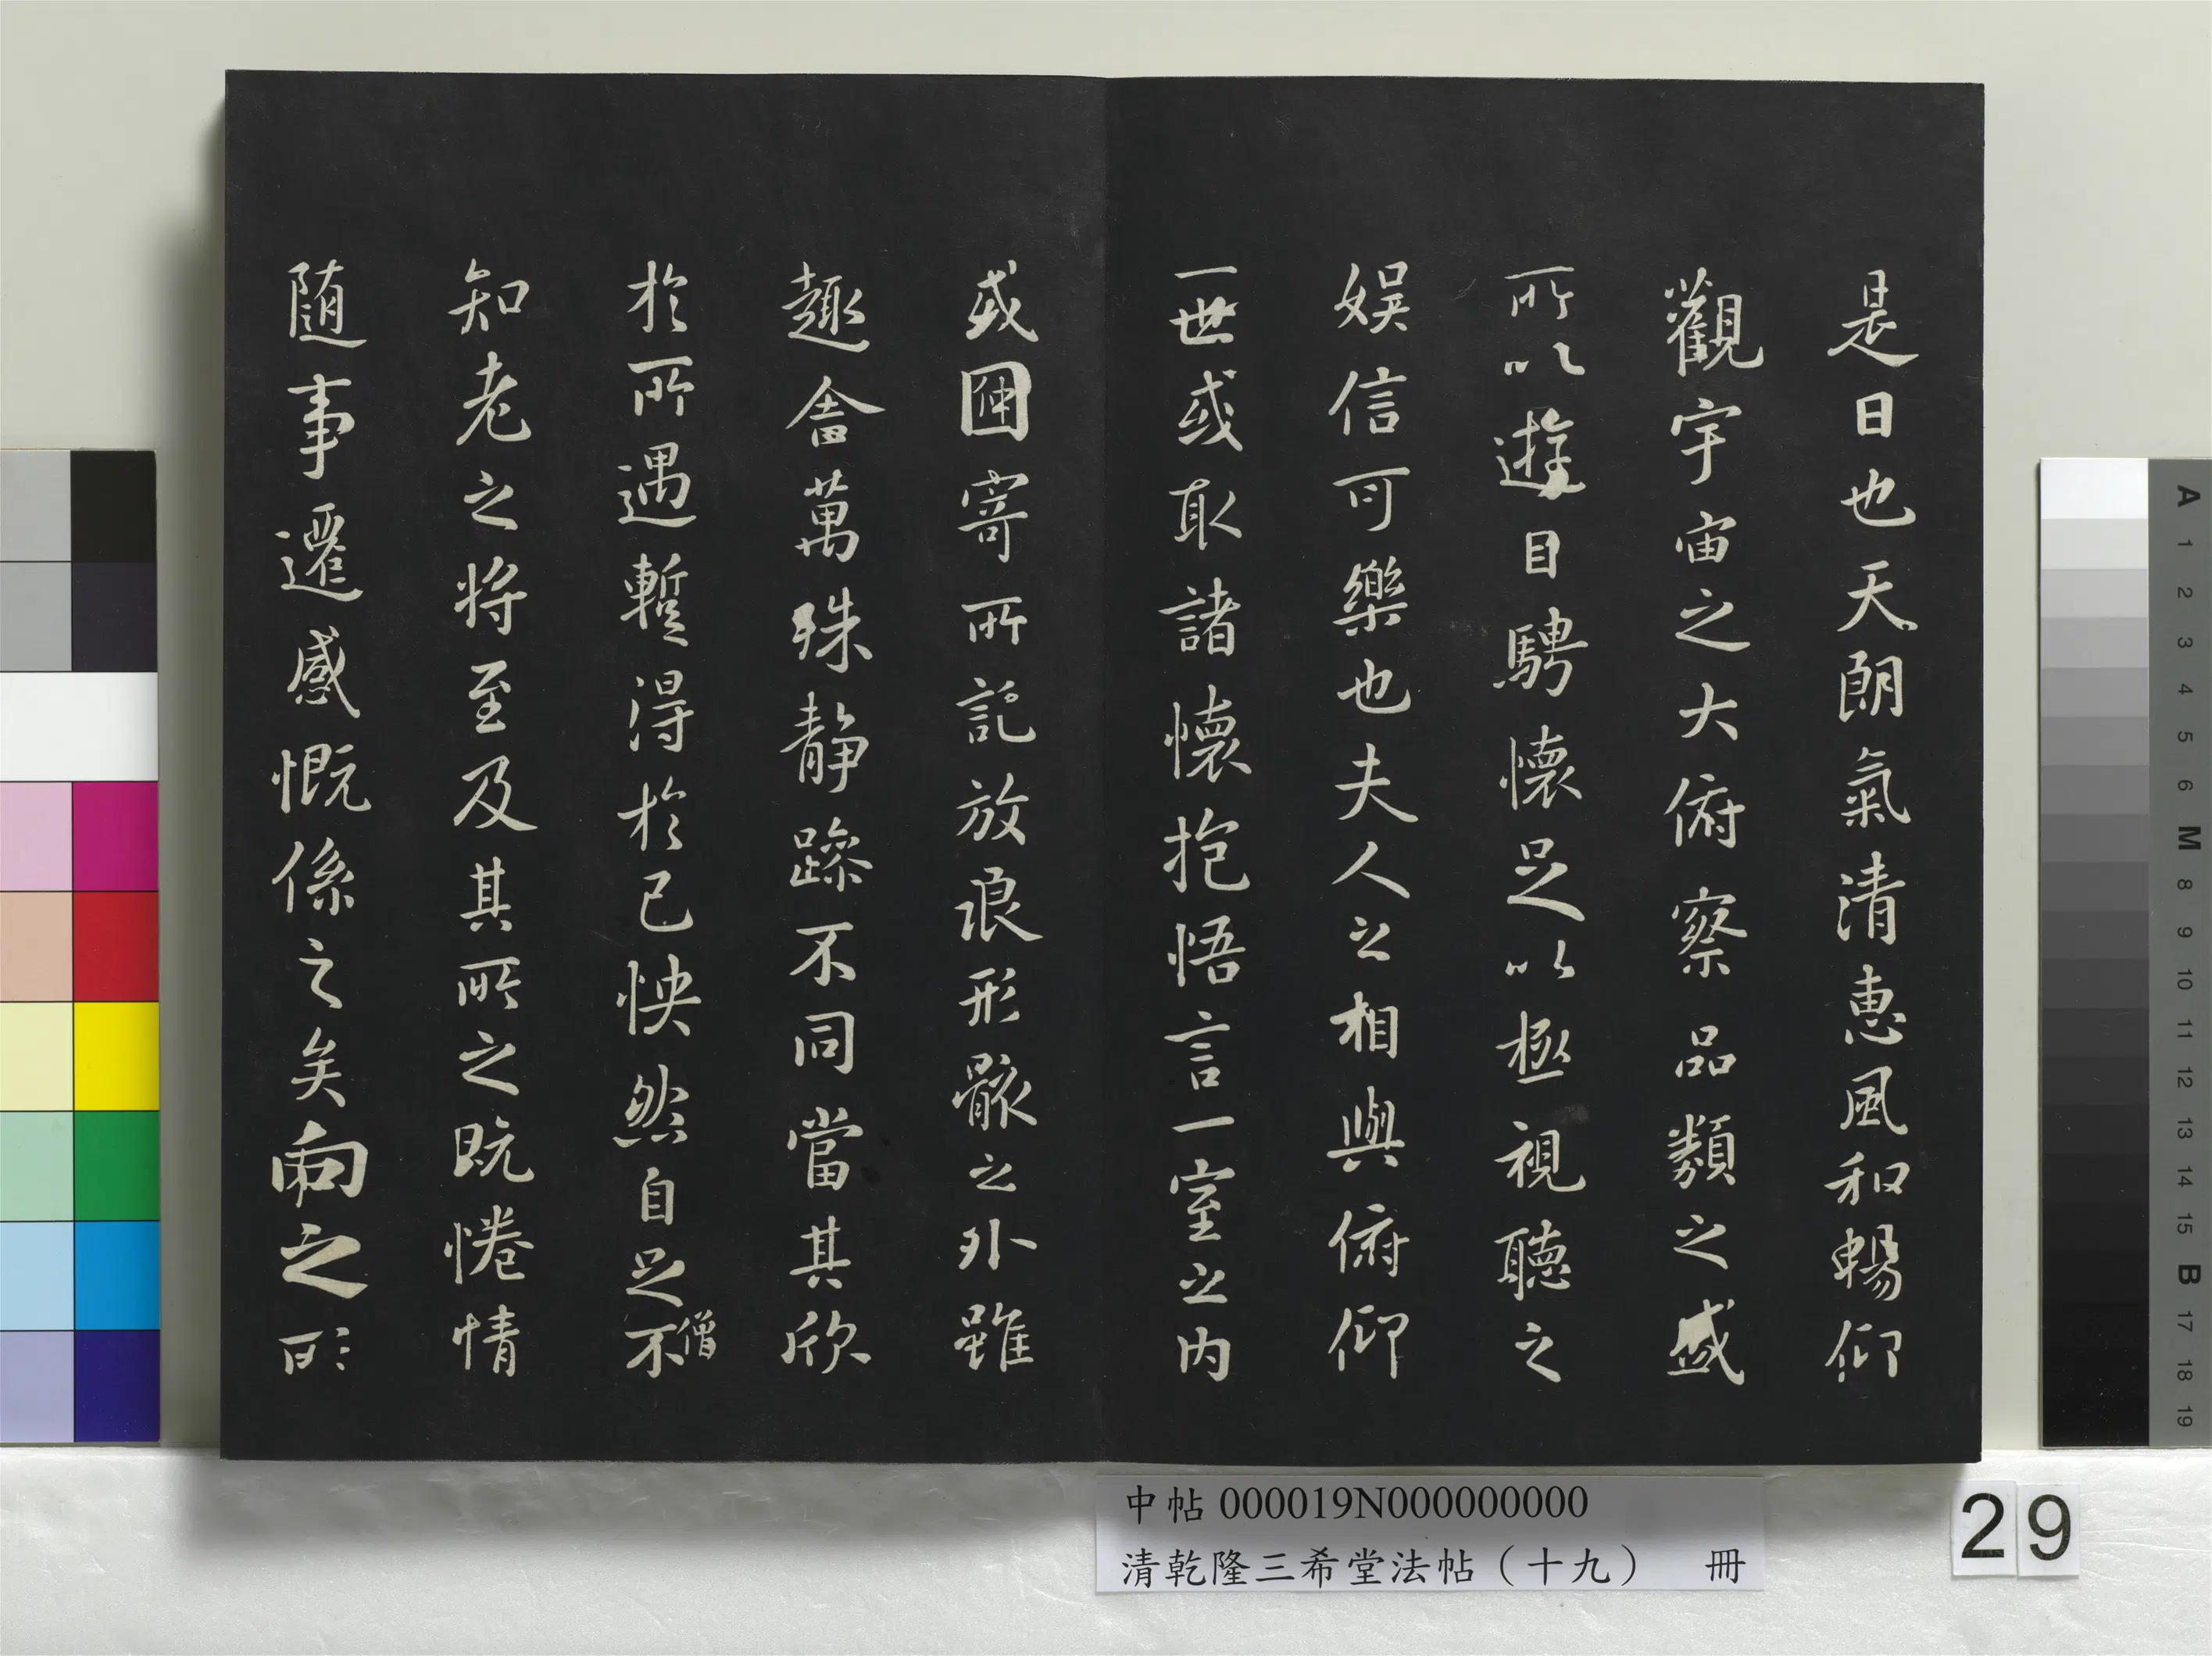 是日也天朗氣清惠風和暢仰
觀宇宙之大俯察品類之盛
所以遊目騁懷足以極視聽之
娛信可樂也夫人之相與俯仰
一世或取諸懷抱悟言一室之內
或因寄所託放浪形骸之外雖
趣舍萬殊静躁不同當其欣
於所遇暫得於己怏然自足不
僧
知老之將至及其所之既惓情
随事遷感慨係之矣向之所
中帖 000019N000000000
清乾隆三希堂法帖（十九） 冊
29
A
1
2
3
4
5
6
M
8
9
10
11
12
13
14
15
B
17
18
19